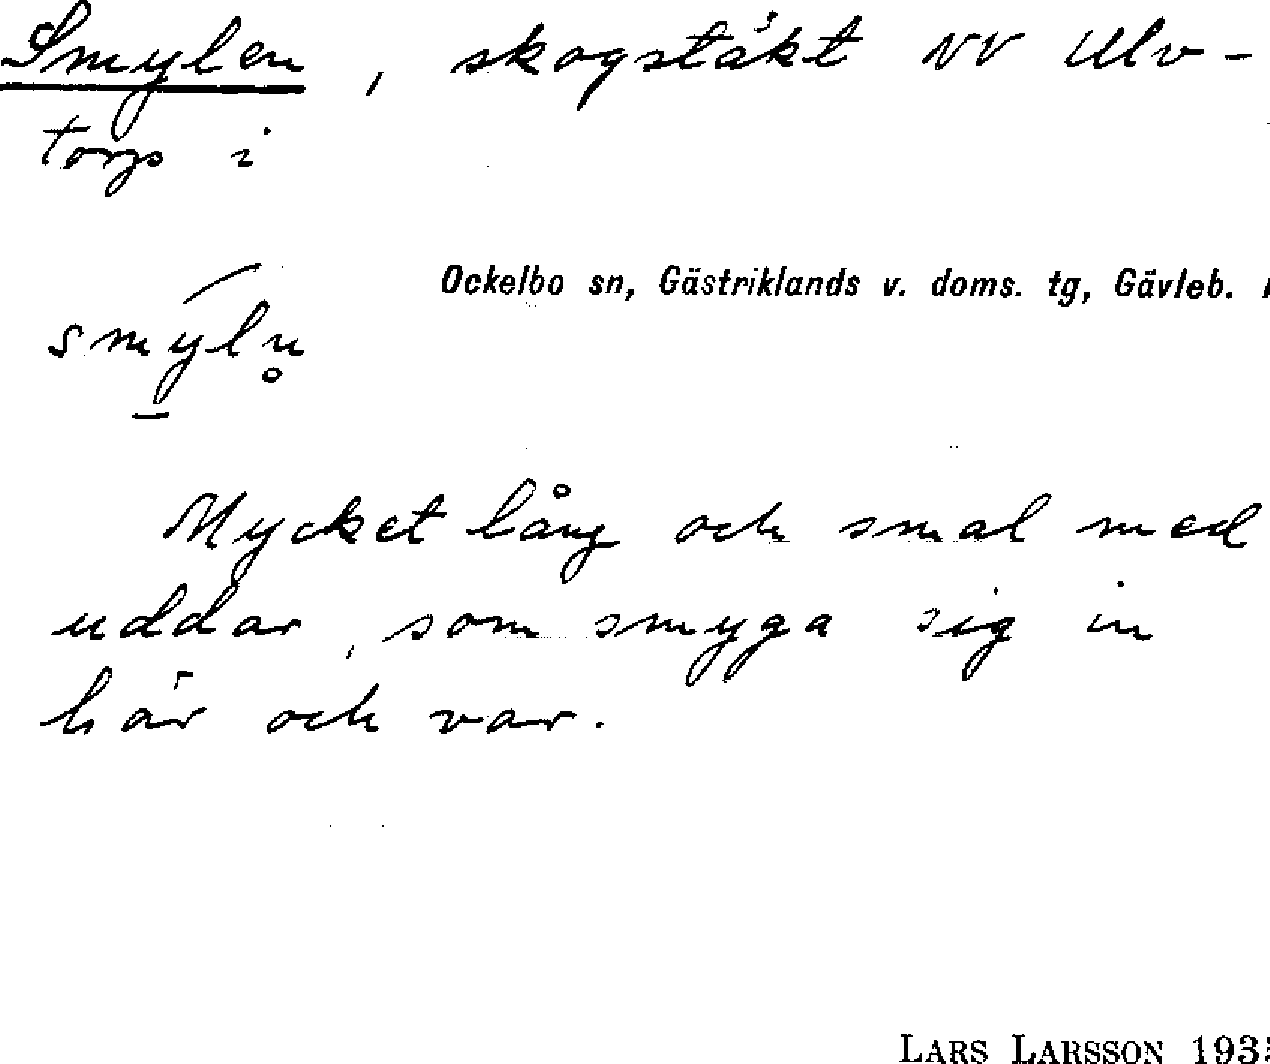 Smylen, skogstäkt NV Ulv-
torp i
Ockelbo sn, Gästriklands v. doms. tg, Gävleb.
smyln̥
Mycket lång och smal med
uddar, som smyga sig in
här och var.
LARS LARSSON 193